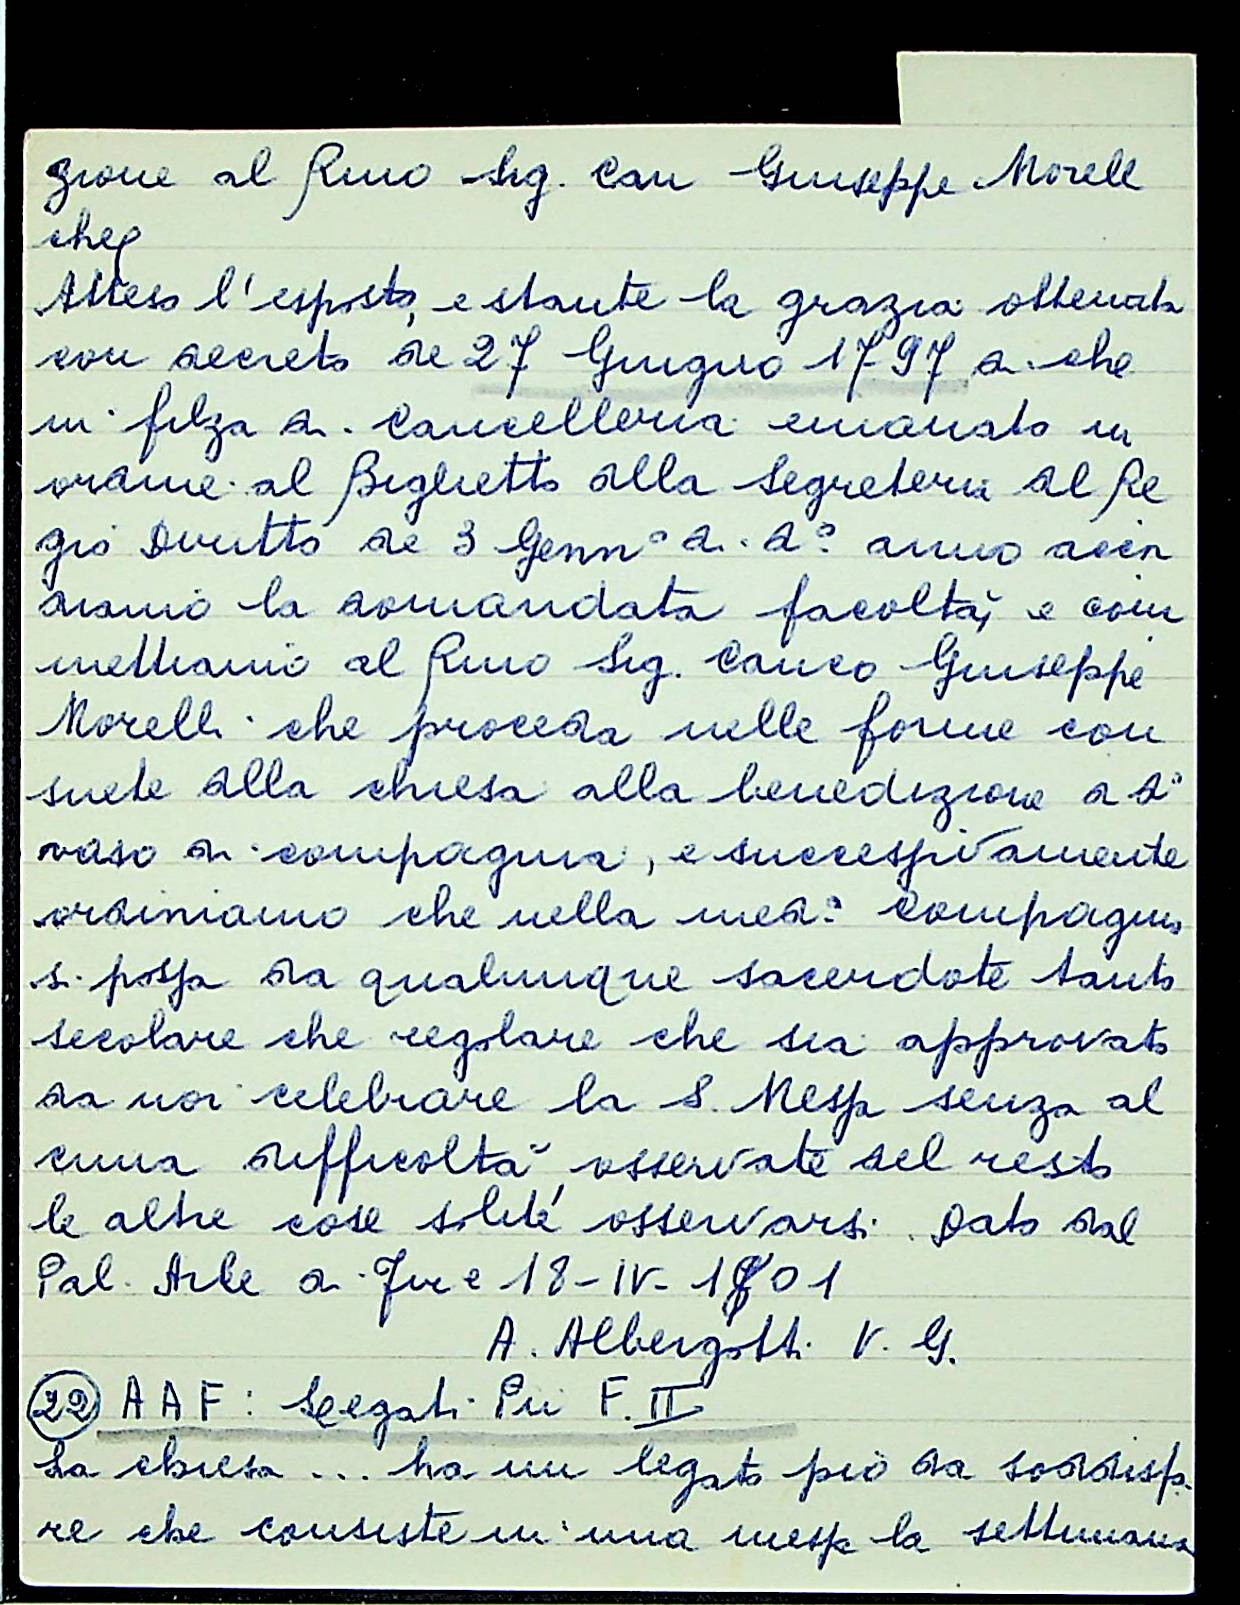 zione al Rmo Sig. Can Giuseppe Morell
che
Atteso l'esposto, e stante la grazia ottenuta
con decreto de 27 Giugno 1797 di che
in filza di Cancelleria emanato in
ordine al Biglietto della Segreteria del Re
gio Diritto de 3 Genn° d. d° anno accor
diamo la domandata facoltà, e com
mettiamo al Rmo Sig. Canco Giuseppe
Morelli che proceda nelle forme con
suete della chiesa alla benedizione di d°
vaso di compagnia, e successivamente
ordiniamo che nella med° Compagnia
si possa da qualunque sacerdote tanto
secolare che regolare che sia approvato
da noi celebrare la S. Messa senza al
cuna difficoltà osservate del resto
le altre cose solite osservarsi. Dato dal
Pal. Arle di Fire 18-IV-1801
A. Albergotti V. G.
22 AAF: Legati Pii F. II
La chiesa ... ha un legato pio da soddisfa
re che consiste in una messa la settimana